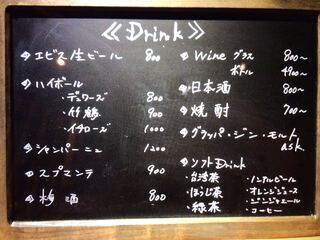 ≪Drink≫
エビス生ビール 800
ハイボール
・デュワーズ 800
・竹鶴 900
・イチローズ 1000
シャンパーニュ 1200
スプマンテ 900
梅酒 800
Wine グラス 800〜
ボトル 4900〜
日本酒 800〜
焼酎 700〜
グラッパ・ジン・モルト
ask.
ソフトDrink
・台湾茶 ・ノンアルビール
・ほうじ茶 ・オレンジジュース
・緑茶 ・ジンジャエール
・コーヒー